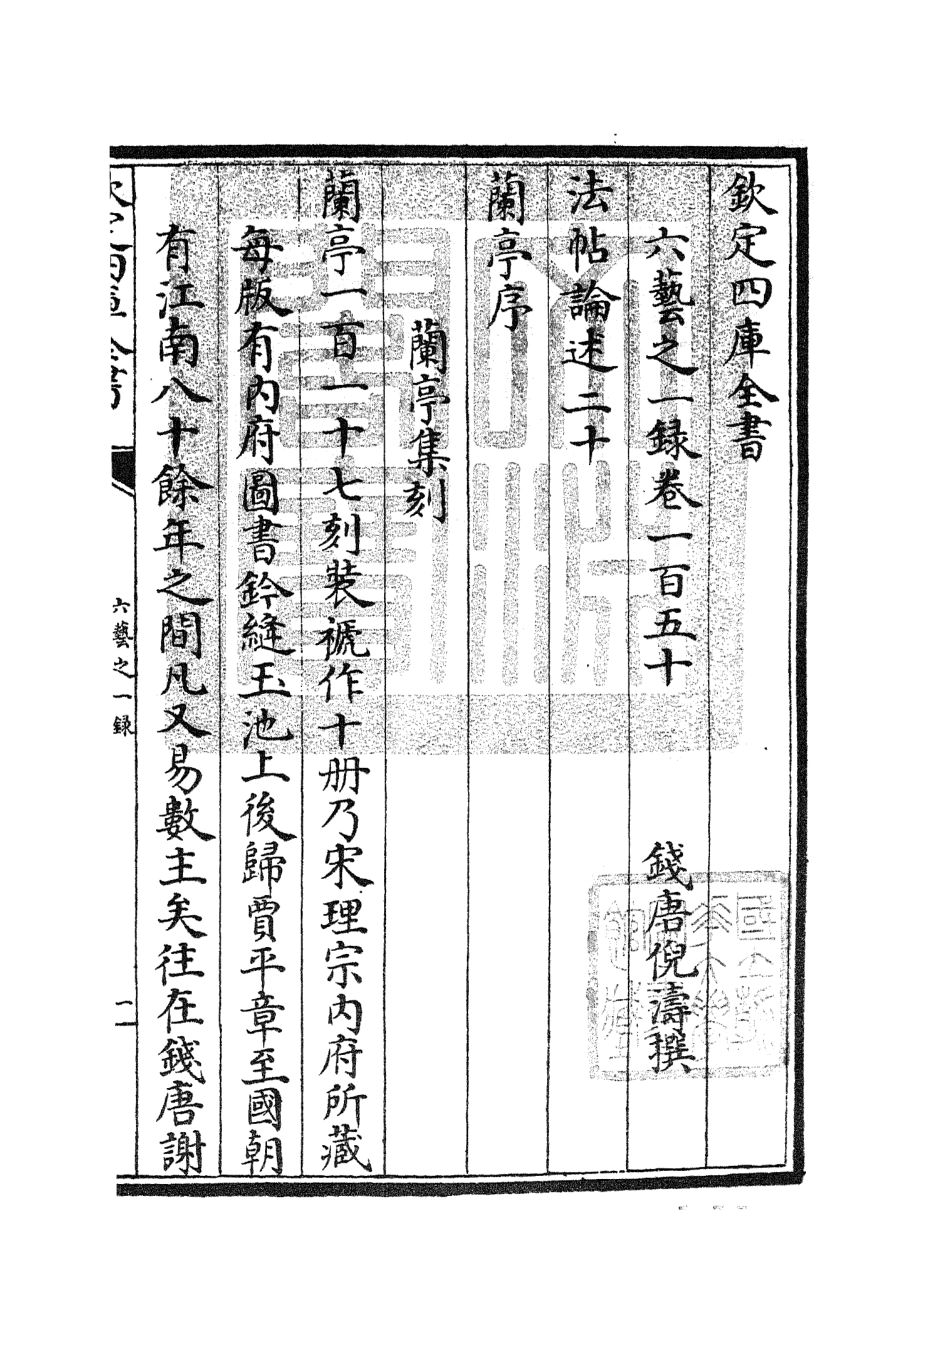 欽定四庫全書
六藝之一録卷一百五十
錢唐倪濤撰
法帖論述二十
蘭亭序
蘭亭集刻
蘭亭一百一十七刻裝褫作十册乃宋理宗内府所藏
每版有内府圖書鈐縫玉池上後歸賈平章至國朝
有江南八十餘年之間凡又易數主矣往在錢唐謝
欽定四庫全書
六藝之一録
一